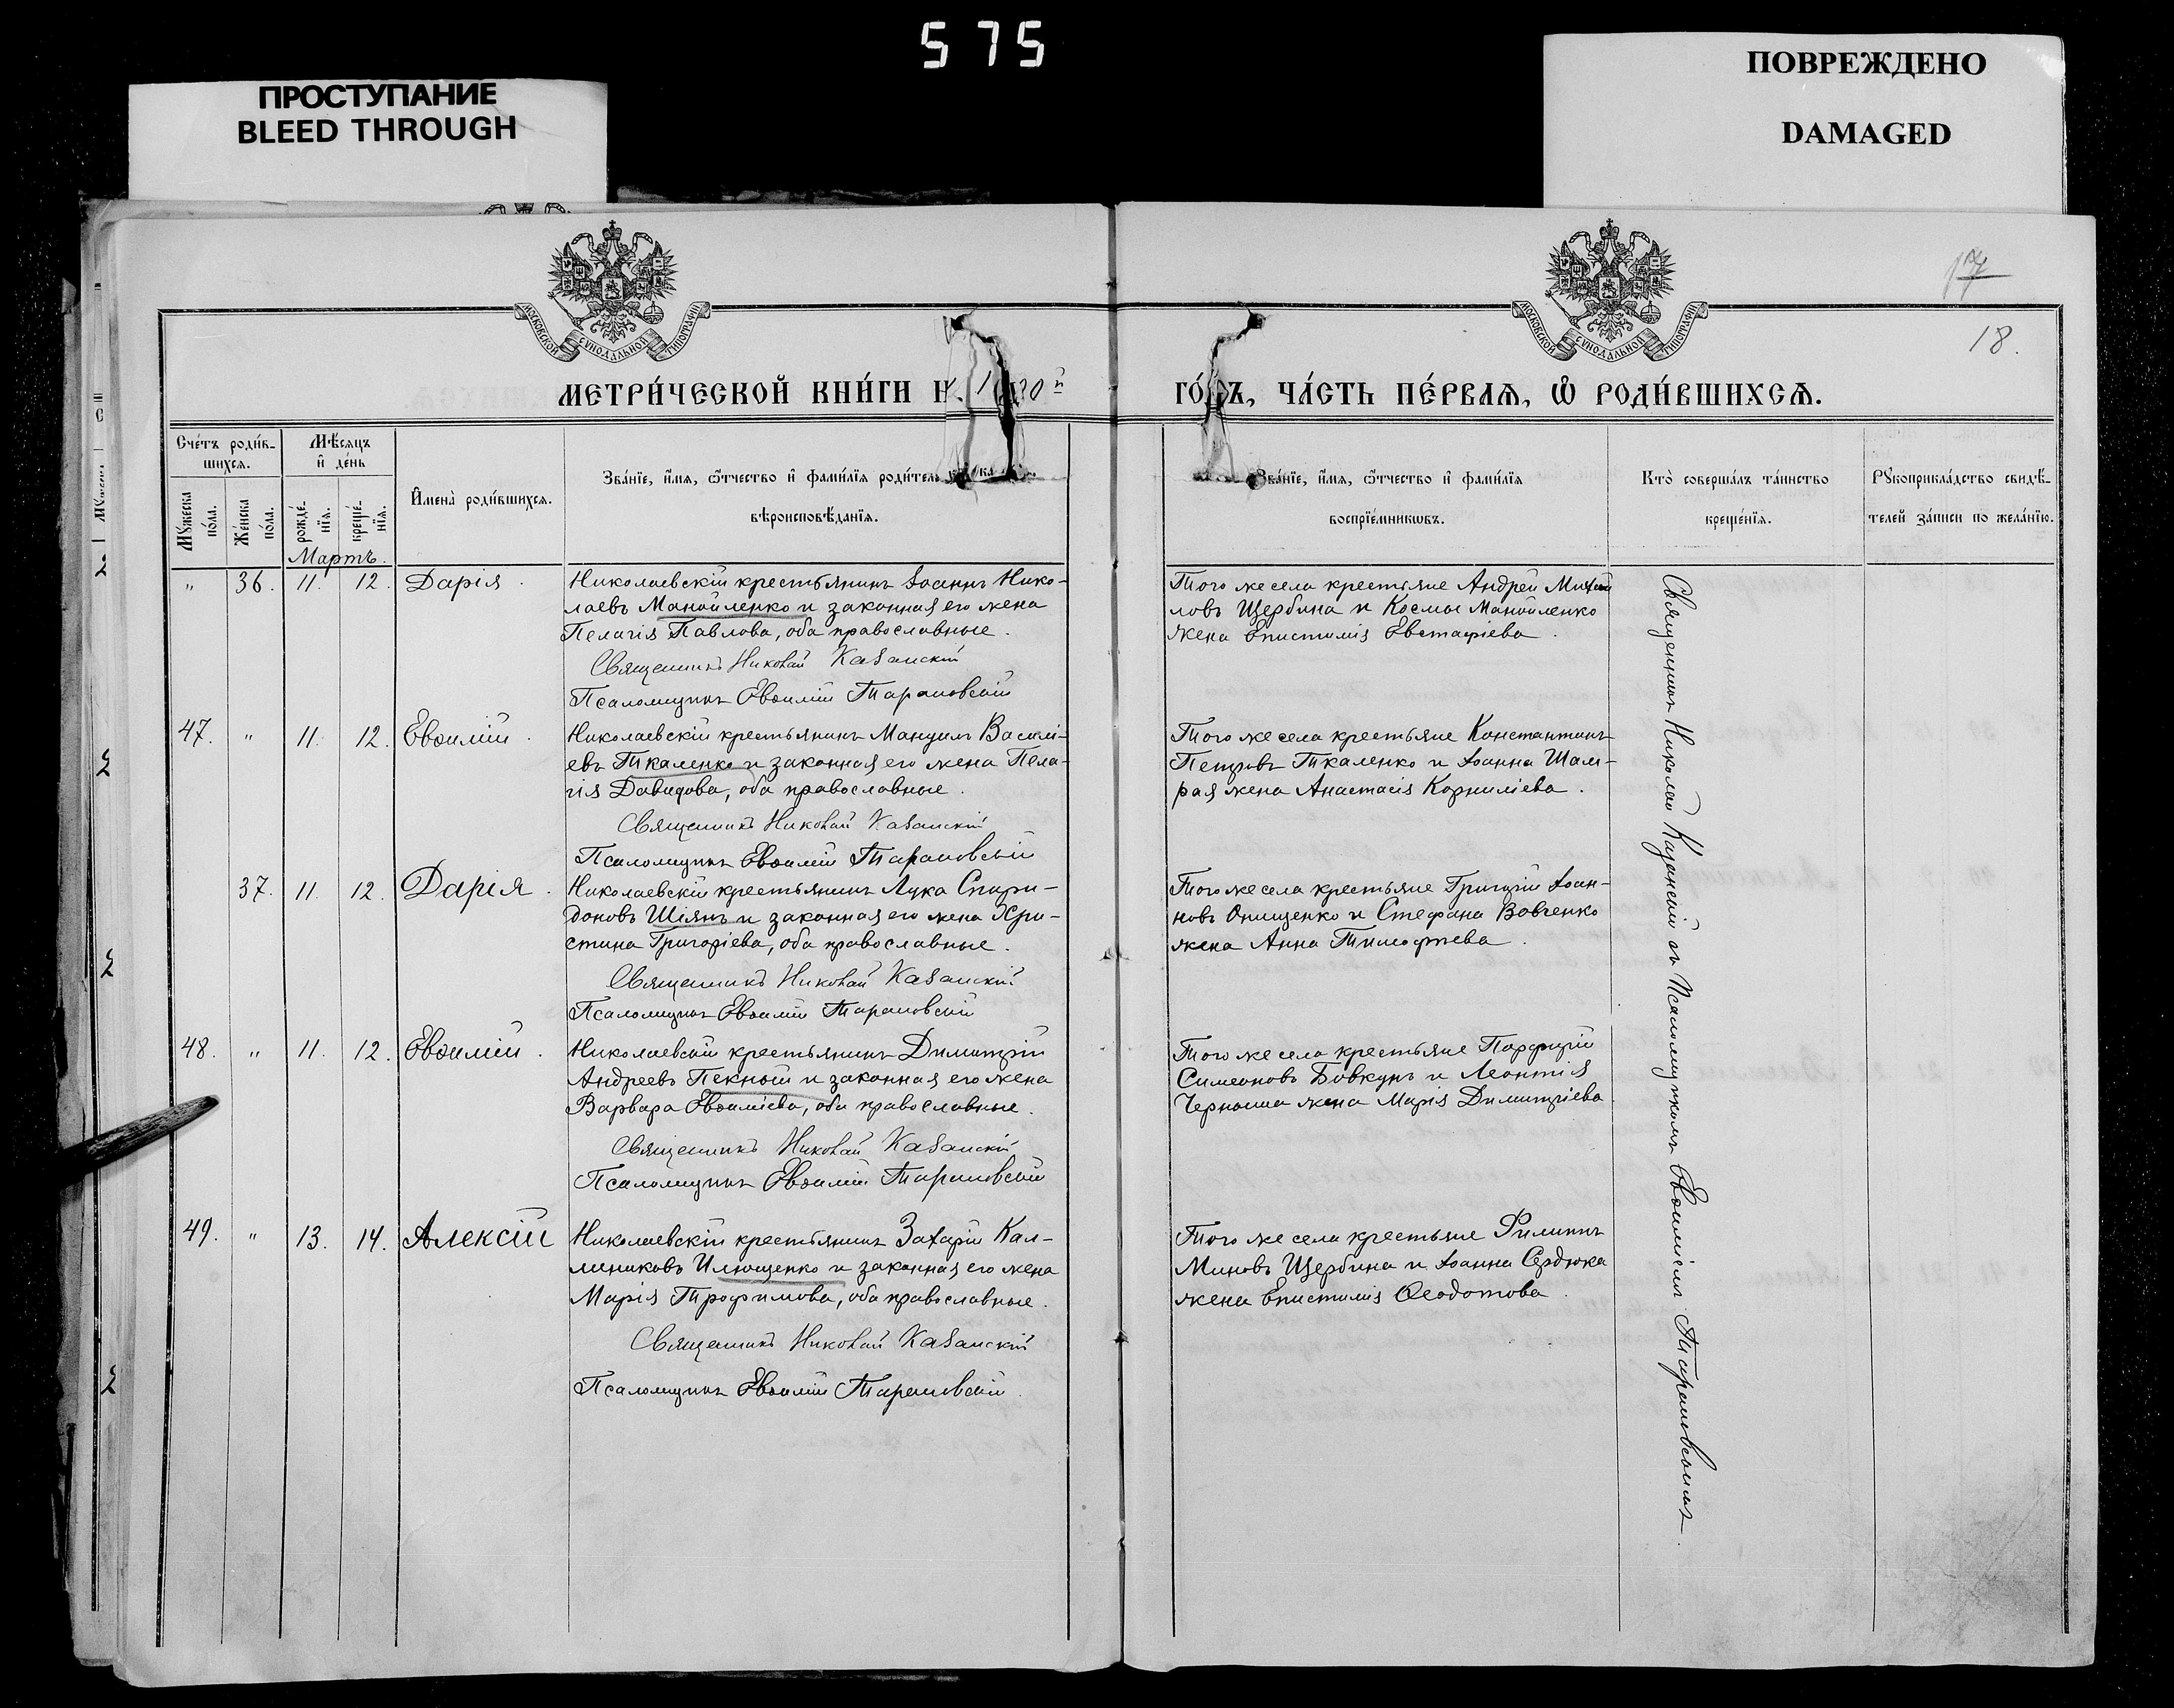 575
ПРОСТУПАНИЕ
BLEED THROUGH
ПОВРЕЖДЕНО
DAMAGED
МОСКОВСКОЙ СѴНОДАЛЬНОЙ ТИПОГРАФІИ
МОСКОВСКОЙ СѴНОДАЛЬНОЙ ТИПОГРАФІИ
17
18.
МЕТРИ́ЧЕСКОЙ КНИ́ГИ Н
ГО́ Ъ, ЧА́СТЬ ПЕ́РВАѦ, Ѡ҆ РОДИ́ВШИХСѦ.
Сче́тъ роди́в-
шихсѧ.
Мѣ́сѧцъ
и҆ де́нь
Мꙋ́жеска по́ла.
Же́нска по́ла.
рожде́нїѧ.
креще́нїѧ.
И҆мена̀ роди́вшихсѧ.
Зва́нїе, и҆́мѧ, ѻ҆́тчество и҆ фами́лїѧ родител
вѣроисповѣ́данїѧ.
Зва́нїе, и҆́мѧ, ѻ҆́тчество и҆ фами́лїѧ
воспрїе́мникѡвъ.
Кто̀ соверша́лъ та́инство
креще́нїѧ.
Рꙋкоприкла́дство свидѣ́-
телей за́писи по жела́нїю.
Мартъ.
" 36. 11. 12. Дарія.
Николаевскій крестьянинъ Іоаннъ Нико-
лаевъ Манойленко и законная его жена
Пелагія Павлова, оба православные.
Священникъ Николай Казанскій
Псаломщикъ Евѳимій Тарановскій
Того же села крестьяне Андрей Михаи
ловъ Щербина и Космы Манойленко
жена Епистимія Евстафіева.
47. " 11. 12. Евѳимій.
Николаевскій крестьянинъ Мануилъ Василі-
евъ Ткаленко и законная его жена Пела-
гія Давидова, оба православные.
Священникъ Николай Казанскій
Псаломщикъ Евѳимій Тарановскій
Того же села крестьяне Константинъ
Петровъ Ткаленко и Іоанна Шам-
рая жена Анастасія Корниліева.
37. 11. 12. Дарія.
Николаевскій крестьянинъ Лука Спири-
доновъ Шіянъ и законная его жена Хри-
стина Григоріева, оба православные.
Священникъ Николай Казанскій
Псаломщикъ Евѳимій Тарановскій
Того же села крестьяне Григорій Іоан-
новъ Онищенко и Стефана Вовченко
жена Анна Тимофѣева.
48. " 11. 12. Евѳимій.
Николаевскій крестьянинъ Димитрій
Андреевъ Пекный и законная его жена
Варвара Евѳиміева, оба православные.
Священникъ Николай Казанскій
Псаломщикъ Евѳимій Тарановскій
Того же села крестьяне Порфирій
Симеоновъ Бовкунъ и Леонтія
Черныша жена Марія Димитріева.
49. " 13. 14. Алексій
Николаевскій крестьянинъ Захарій Кал-
линиковъ Илющенко и законная его жена
Марія Трофимова, оба православные.
Священникъ Николай Казанскій
Псаломщикъ Евѳимій Тарановскій.
Того же села крестьяне Филиппъ
Миновъ Щербина и Іоанна Сердюка
жена Епистимія Ѳеодотова.
Священникъ Николай Казанскій съ Псаломщикомъ Евѳиміемъ Тарановскимъ.